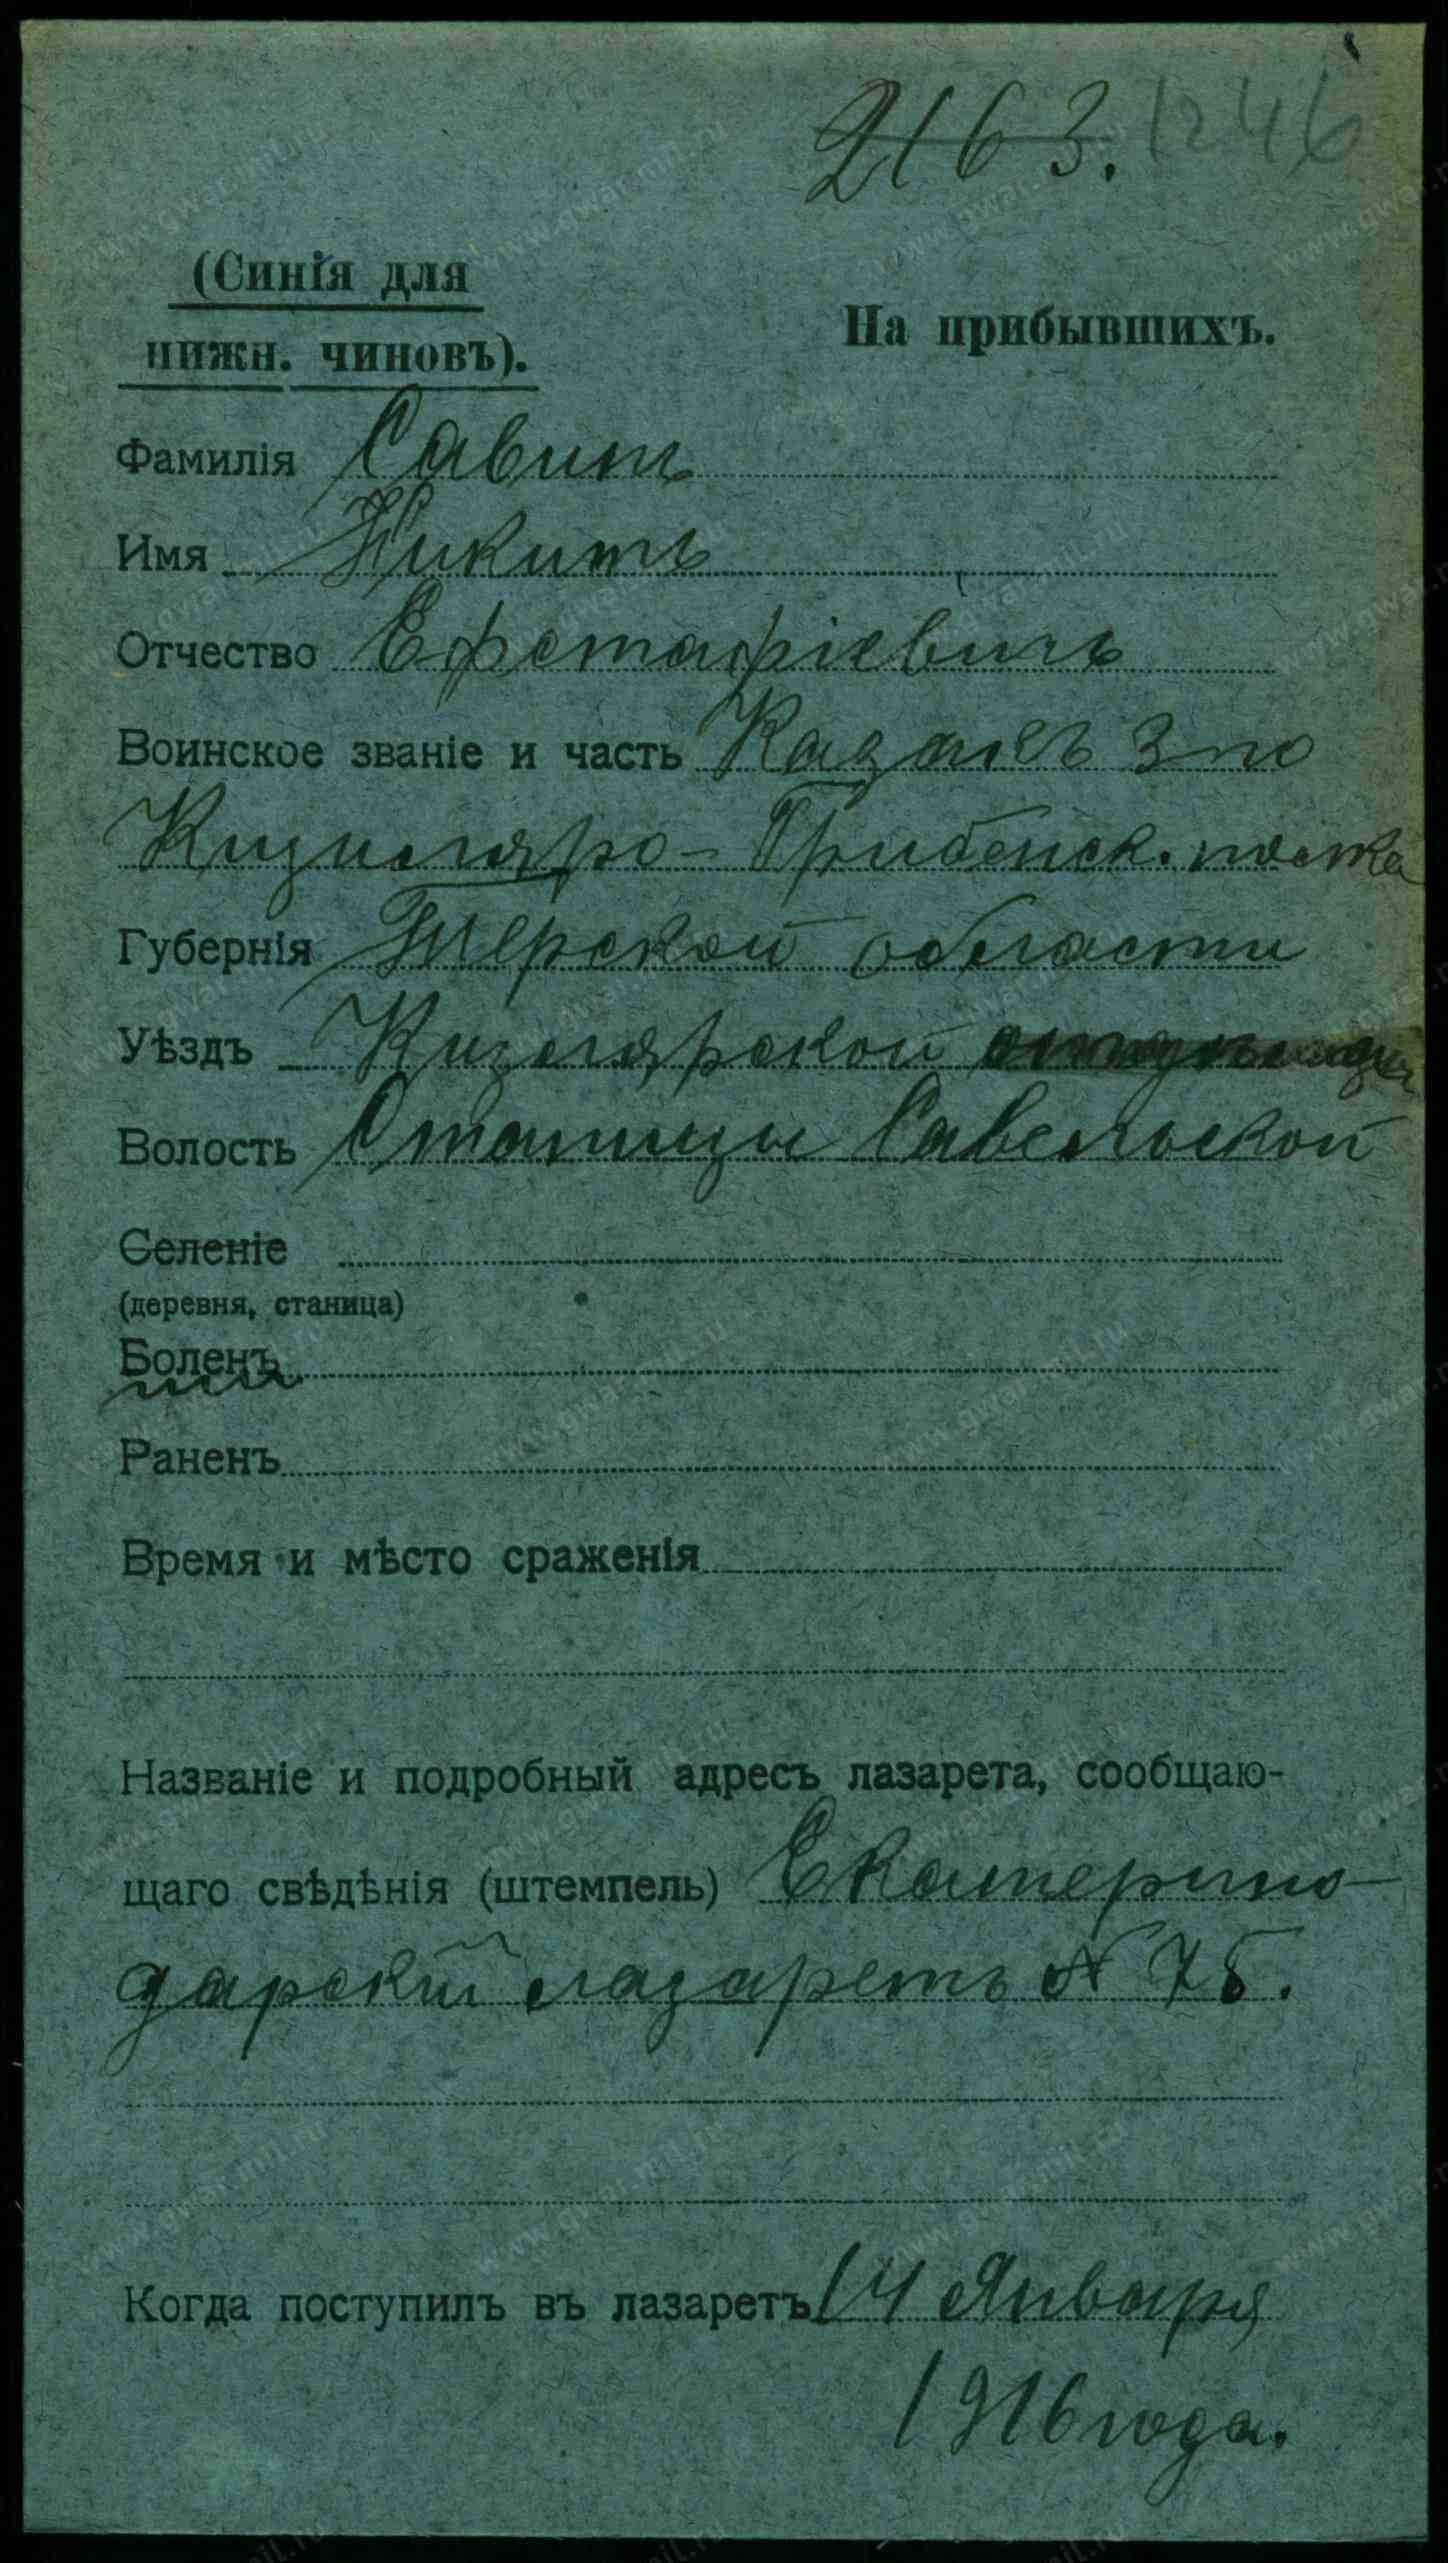 2163. 1246
(Синія для
нижн. чиновъ).
На прибывшихъ.
Фамилія Савинъ
Имя Никитъ
Отчество Ефстафіевичъ
Воинское званіе и часть Казакъ 3 го
Кизляро-Грибенск. полка
Губернія Терской области
Уѣздъ Кизлярской
Волость Станицы Савельской
Селеніе
(деревня, станица)
Боленъ
Раненъ
Время и мѣсто сраженія
Названіе и подробный адресъ лазарета, сообщаю-
щаго свѣдѣнія (штемпель) Екатерино-
дарскій лазаретъ № 75.
Когда поступилъ въ лазаретъ 14 Января
1916 года.